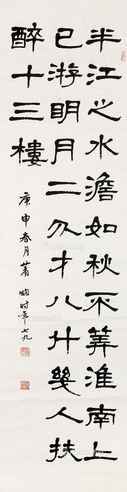 半江之水澹如秋不筭淮南上
巳游明月二分才八斗幾人扶
醉十三樓
庚申春月萧娴时年七九